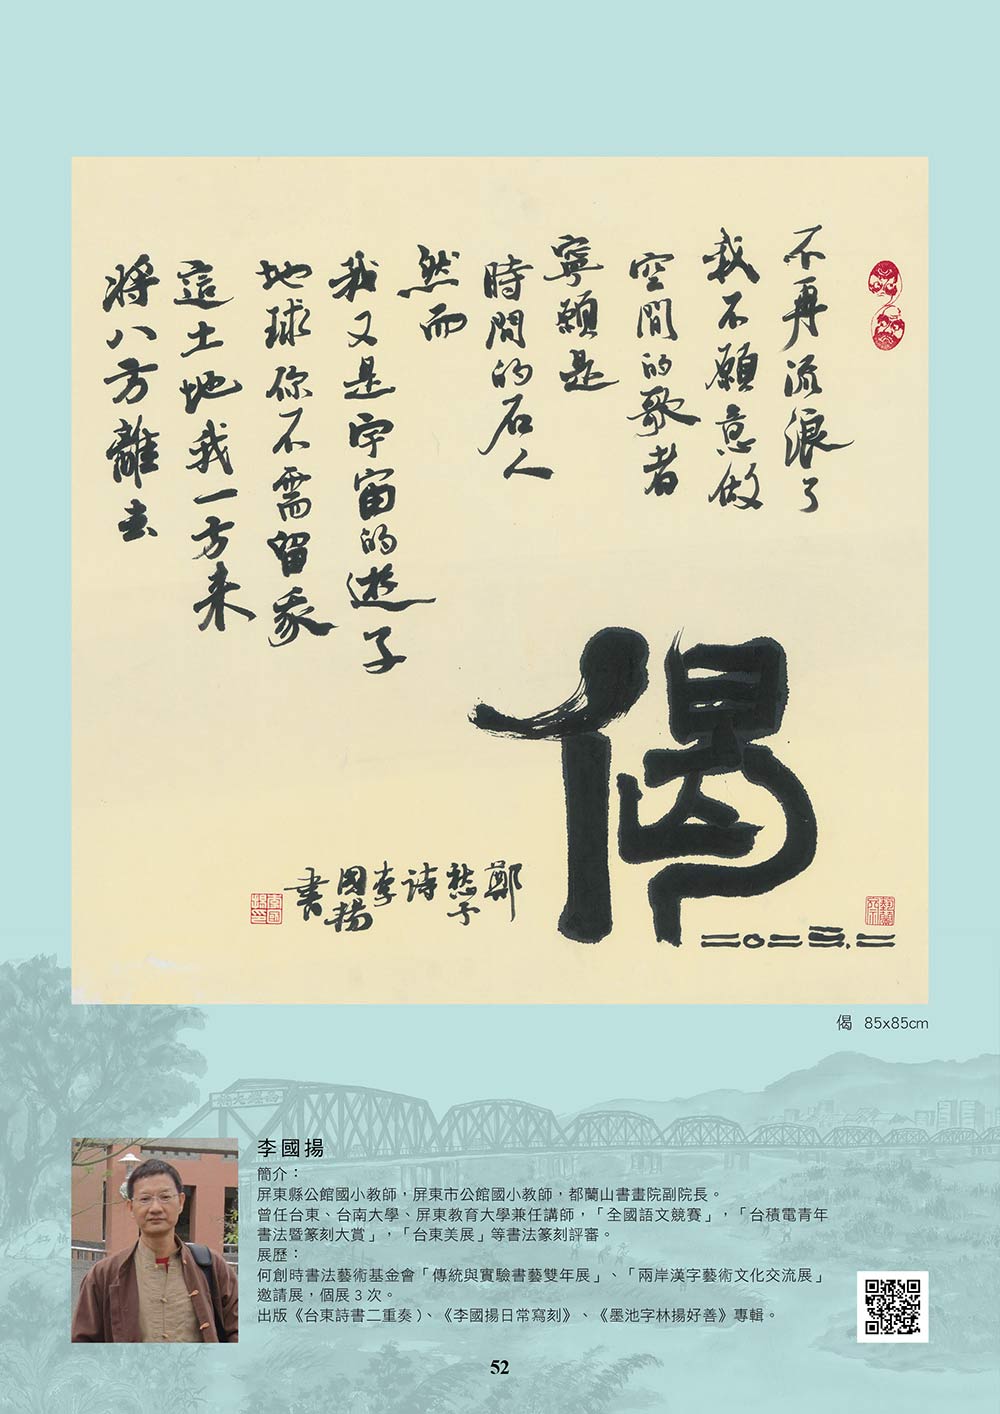 不再流浪了
我不願意做
空間的歌者
寧願是
時間的石人
然而
我又是宇宙的遊子
地球你不需留我
這土地我一方來
將八方離去
偈
二〇二三.二
鄭
愁予
詩
李
國揚
書
偈 85x85cm
李國揚
簡介：
屏東縣公館國小教師，屏東市公館國小教師，都蘭山書畫院副院長。
曾任台東、台南大學、屏東教育大學兼任講師，「全國語文競賽」，「台積電青年
書法暨篆刻大賞」，「台東美展」等書法篆刻評審。
展歷：
何創時書法藝術基金會「傳統與實驗書藝雙年展」、「兩岸漢字藝術文化交流展」
邀請展，個展 3 次。
出版《台東詩書二重奏）、《李國揚日常寫刻》、《墨池字林揚好善》專輯。
52